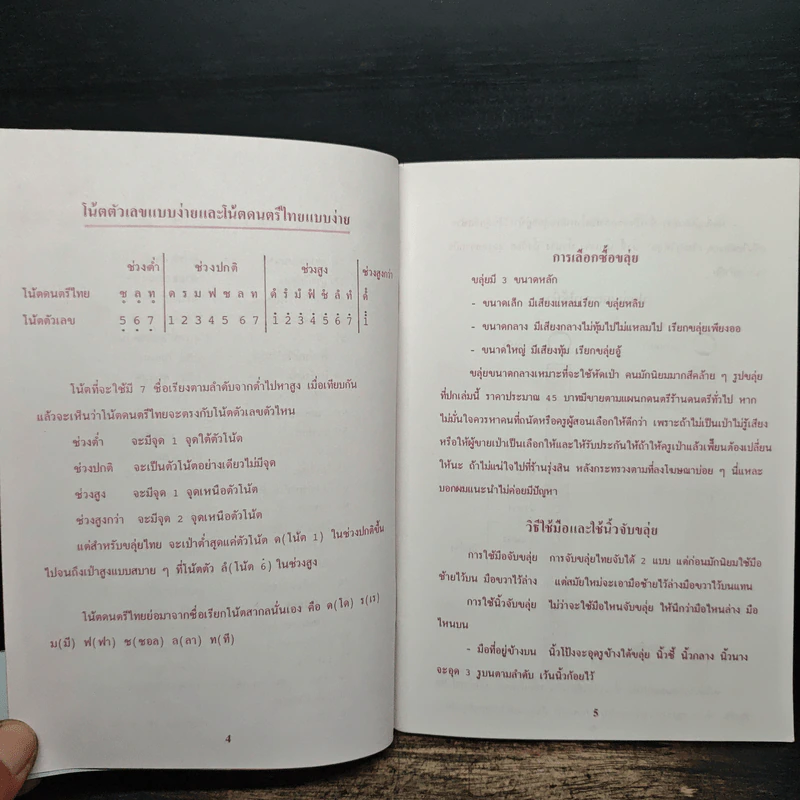 โน้ตตัวเลขแบบง่ายและโน้ตดนตรีไทยแบบง่าย
ช่วงต่ำ ช่วงปกติ ช่วงสูง ช่วงสูงกว่า
โน้ตดนตรีไทย ชฺ ลฺ ทฺ ด ร ม ฟ ช ล ท ดํ รํ มํ ฟํ ชํ ลํ ทํ ดํ
โน้ตตัวเลข 5̣ 6̣ 7̣ 1 2 3 4 5 6 7 1̇ 2̇ 3̇ 4̇ 5̇ 6̇ 7̇ 1̈
โน้ตที่จะใช้มี 7 ชื่อเรียงตามลำดับจากต่ำไปหาสูง เมื่อเทียบกัน
แล้วจะเห็นว่าโน้ตดนตรีไทยจะตรงกับโน้ตตัวเลขตัวไหน
ช่วงต่ำ จะมีจุด 1 จุดใต้ตัวโน้ต
ช่วงปกติ จะเป็นตัวโน้ตอย่างเดียวไม่มีจุด
ช่วงสูง จะมีจุด 1 จุดเหนือตัวโน้ต
ช่วงสูงกว่า จะมีจุด 2 จุดเหนือตัวโน้ต
แต่สำหรับขลุ่ยไทย จะเป่าต่ำสุดแค่ตัวโน้ต ด(โน้ต 1) ในช่วงปกติขึ้น
ไปจนถึงเป่าสูงแบบสบาย ๆ ที่โน้ตตัว ลํ(โน้ต 6̇) ในช่วงสูง
โน้ตดนตรีไทยย่อมาจากชื่อเรียกโน้ตสากลนั่นเอง คือ ด(โด) ร(เร)
ม(มี) ฟ(ฟา) ช(ชอล) ล(ลา) ท(ที)
4
การเลือกซื้อขลุ่ย
ขลุ่ยมี 3 ขนาดหลัก
- ขนาดเล็ก มีเสียงแหลมเรียก ขลุ่ยหลิบ
- ขนาดกลาง มีเสียงกลางไม่ทุ้มไปไม่แหลมไป เรียกขลุ่ยเพียงออ
- ขนาดใหญ่ มีเสียงทุ้ม เรียกขลุ่ยอู้
ขลุ่ยขนาดกลางเหมาะที่จะใช้หัดเป่า คนมักนิยมมากสีคล้าย ๆ รูปขลุ่ย
ที่ปกเล่มนี้ ราคาประมาณ 45 บาทมีขายตามแผนกดนตรีร้านดนตรีทั่วไป หาก
ไม่มั่นใจควรหาคนที่ถนัดหรือครูผู้สอนเลือกให้ดีกว่า เพราะถ้าไม่เป็นเป่าไม่รู้เสียง
หรือให้ผู้ขายเป่าเป็นเลือกให้และให้รับประกันให้ถ้าให้ครูเป่าแล้วเพี้ยนต้องเปลี่ยน
ให้นะ ถ้าไม่แน่ใจไปที่ร้านรุ่งสิน หลังกระทรวงตามที่ลงโฆษณาบ่อย ๆ นี่แหละ
บอกผมแนะนำไม่ค่อยมีปัญหา
วิธีใช้มือและใช้นิ้วจับขลุ่ย
การใช้มือจับขลุ่ย การจับขลุ่ยไทยจับได้ 2 แบบ แต่ก่อนมักนิยมใช้มือ
ซ้ายไว้บน มือขวาไว้ล่าง แต่สมัยใหม่จะเอามือซ้ายไว้ล่างมือขวาไว้บนแทน
การใช้นิ้วจับขลุ่ย ไม่ว่าจะใช้มือไหนจับขลุ่ย ให้นึกว่ามือไหนล่าง มือ
ไหนบน
- มือที่อยู่ข้างบน นิ้วโป้งจะอุดรูข้างใต้ขลุ่ย นิ้วชี้ นิ้วกลาง นิ้วนาง
จะอุด 3 รูบนตามลำดับ เว้นนิ้วก้อยไว้
5